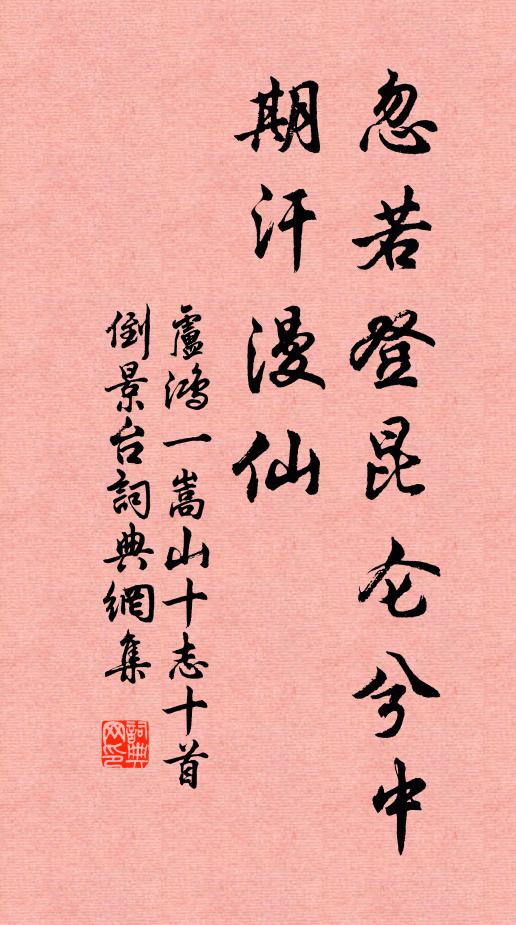 忽若登昆仑兮中
期汗漫仙
盧鴻一嵩山十志十首
倒景台詞典網集
詞典网印